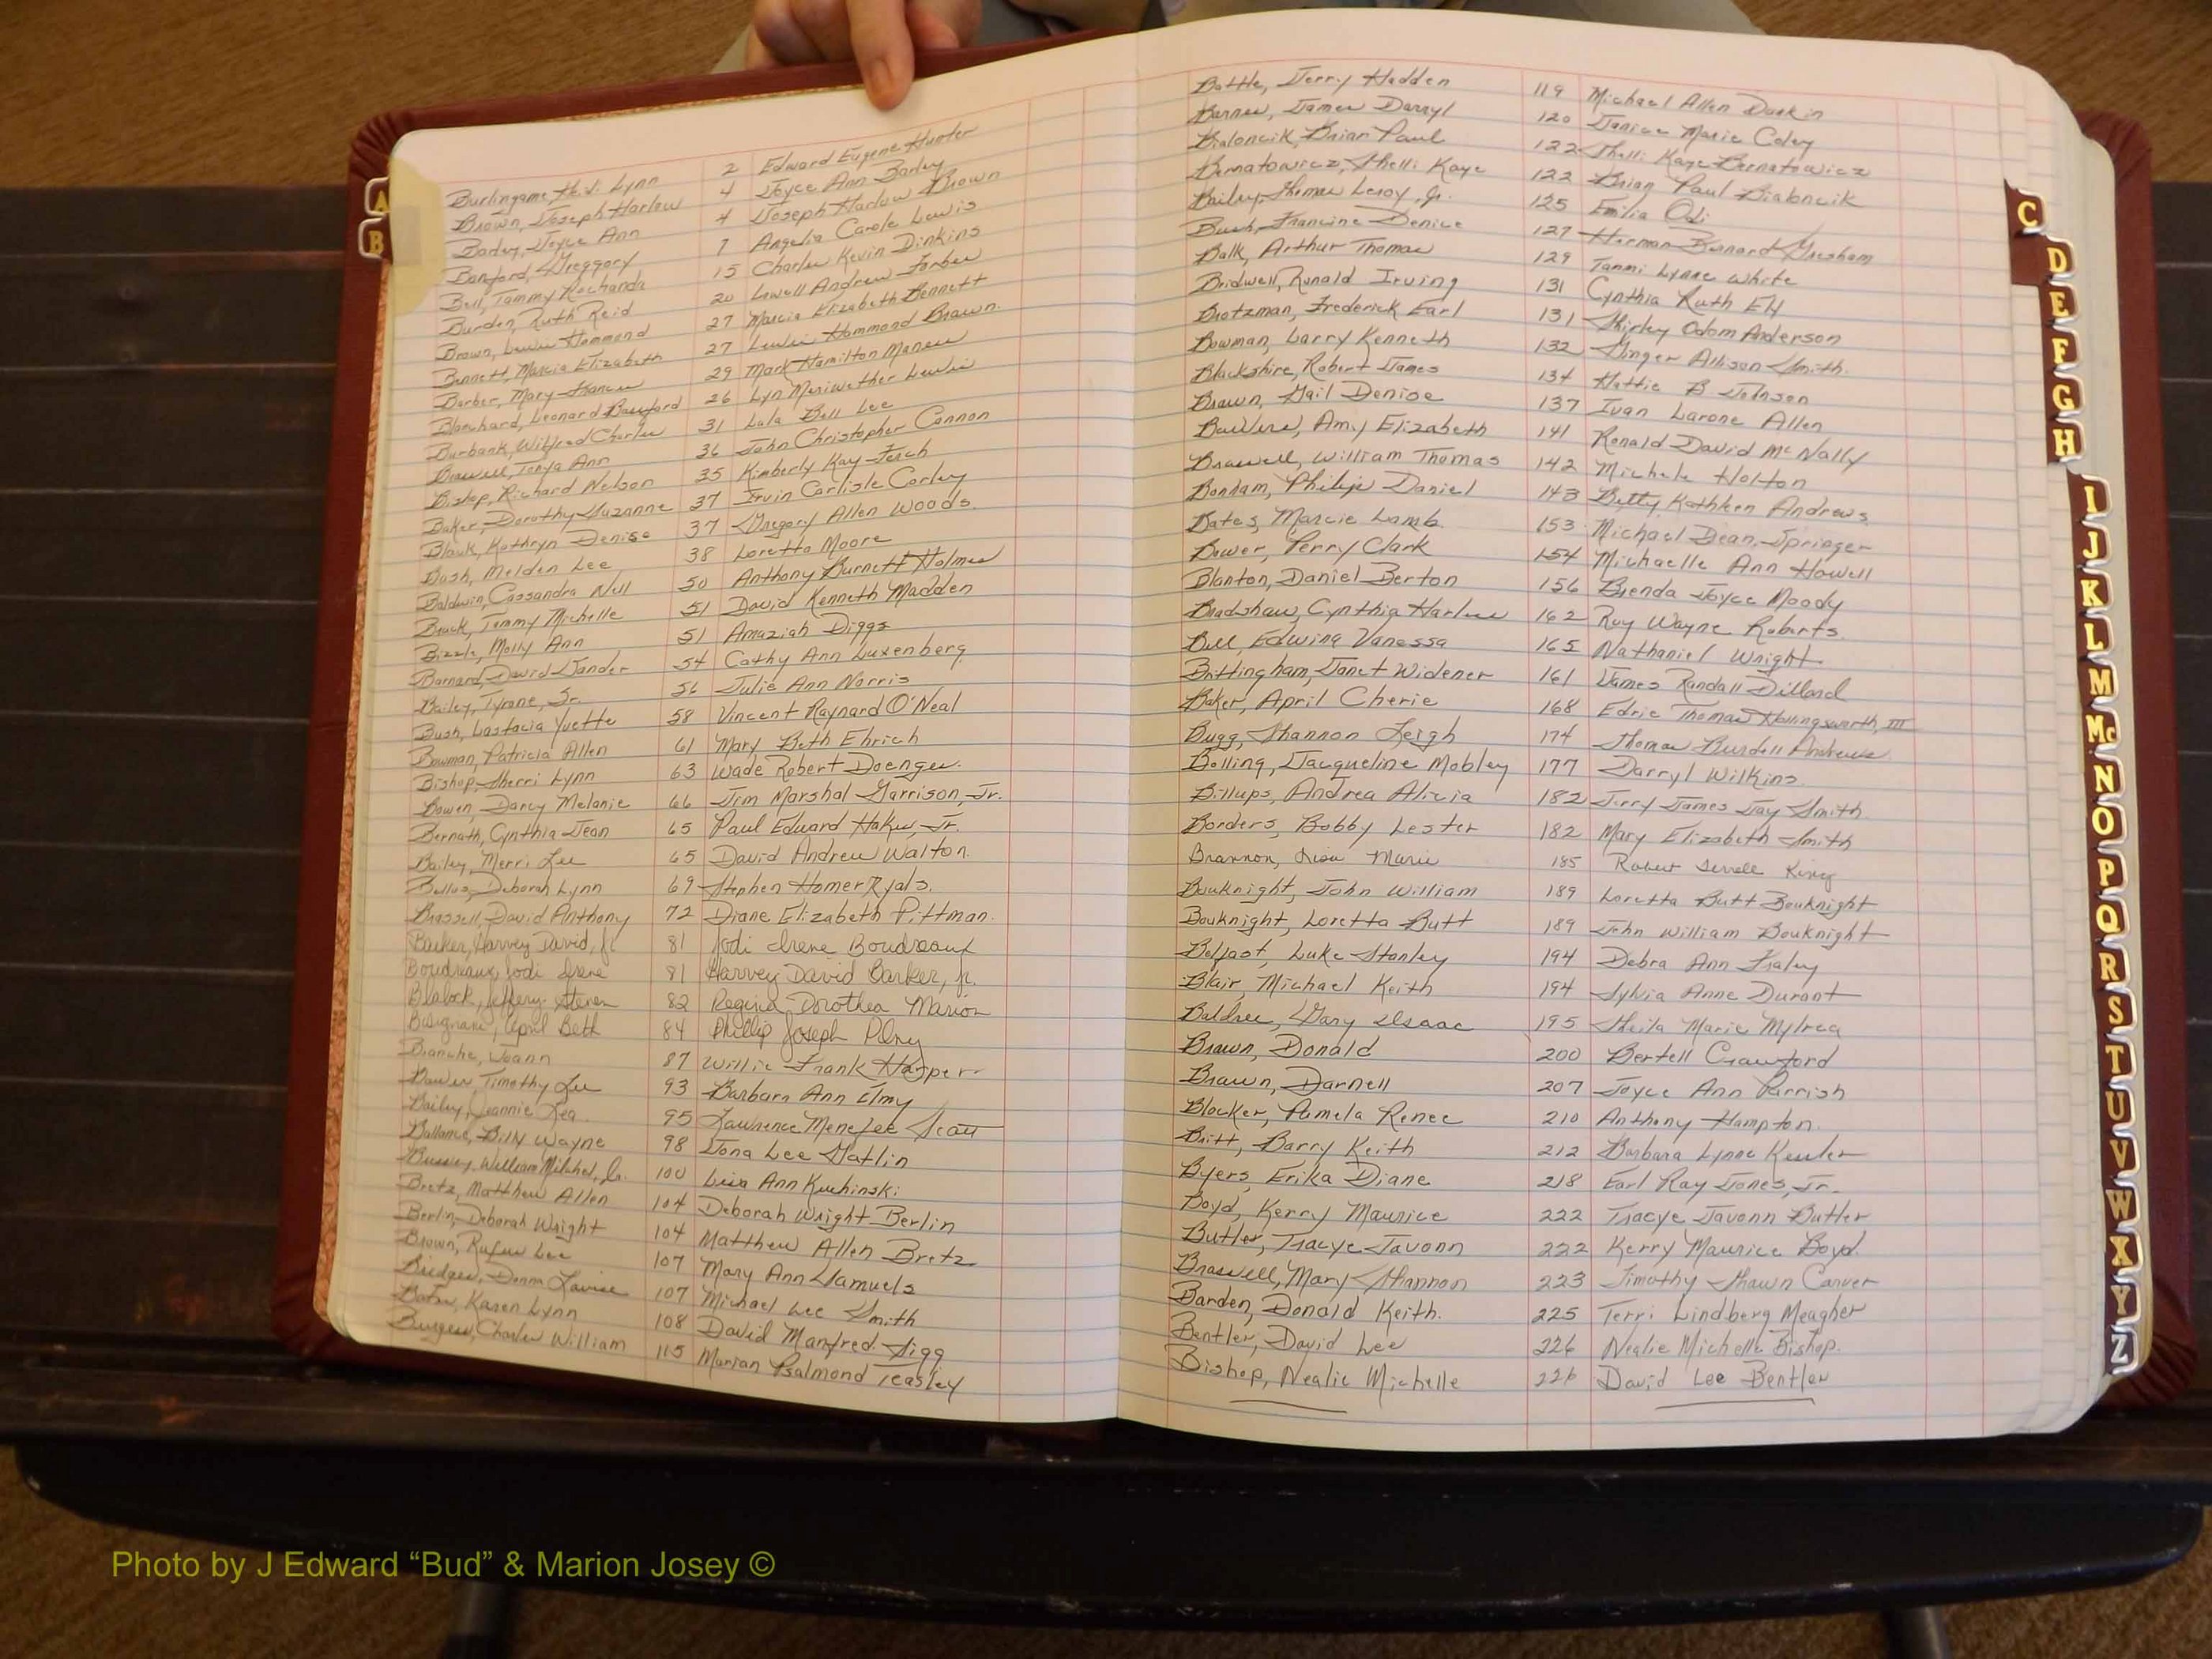 A
B
Burlingame, Heidi Lynn 2 Edward Eugene Hunter
Brown, Joseph Harlow 4 Joyce Ann Barley
Barley, Joyce Ann 4 Joseph Harlow Brown
Banford, Greggory 7 Angelia Carole Lewis
Bell, Tammy Rochanda 15 Charles Kevin Dinkins
Burden, Ruth Reid 20 Lowell Andrew Forbes
Brown, Lewis Hammond 27 Marcia Elizabeth Bennett
Bennett, Marcia Elizabeth 27 Lewis Hammond Brown
Barber, Mary Frances 29 Mark Hamilton
Blanchard, Leonard 26 Lyn Meriwether Lewis
Burbank, Wilfred Charles 31 Lula Bell Lee
Braswell, Tonya Ann 36 John Christopher Cannon
Bishop, Richard Nelson 35 Kimberly Kay
Baker, Dorothy Suzanne 37 Irvin Carlisle Corley
Black, Kathryn Denise 37 Gregory Allen Woods
Bush, Melden Lee 38 Loretta Moore
Baldwin, Cassandra Nell 50 Anthony Burnett Holmes
Tammy Michelle 51 David Kenneth Madden
Bizzle, Molly Ann 51 Amaziah Diggs
Barnard, David 54 Cathy Ann Luxenberg
Bailey, Tyrone, Sr. 56 Julie Ann Norris
Bush, Lastacia Yvette 58 Vincent Raynard O'Neal
Bowman, Patricia Allen 61 Mary Beth Ehrich
Bishop, Sherri Lynn 63 Wade Robert Doenges
Bowen, Darcy Melanie 66 Jim Marshal Garrison, Jr.
Bernath, Cynthia Jean 65 Paul Edward Jr.
Bailey, Merri Lee 65 David Andrew Walton
Deborah Lynn 69 Stephen Homer Ryals
Brassell, David Anthony 72 Diane Elizabeth Pittman
Barker, Harvey David, Jr. 81 Jodi Irene Boudreaux
Boudreaux, Jodi Irene 81 Harvey David Barker, Jr.
Blalock, Jeffery Steven 82 Regina Dorothea Marion
Bisignani, April Beth 84 Phillip Joseph
Branche, Joann 87 Willie Frank Harper
Timothy Lee 93 Barbara Ann Elmy
Bailey, Jeannie Lea 95 Lawrence Menefee Scott
Ballance, Billy Wayne 98 Tona Lee Gatlin
Bussey, William Mitchel, Jr. 100 Lisa Ann Kuchinski
Bretz, Matthew Allen 104 Deborah Wright Berlin
Berlin, Deborah Wright 104 Matthew Allen Bretz
Brown, Rufus Lee 107 Mary Ann Samuels
Bridges, Donna Louise 107 Michael Lee Smith
Karen Lynn 108 David Manfred Sigg
Burgess, Charles William 115 Marian Psalmond Teasley
Battle, Terry Hadden 119 Michael Allen
Barnes, James Darryl 120 Janice Marie Coley
Bialoncik, Brian Paul 122 Shelli Kaye Bernatowicz
Bernatowicz, Shelli Kaye 122 Brian Paul Bialoncik
Bailey, Thomas Leroy, Jr. 125 Emilia Odi
Bush, Francine Denice 127 Herman Bernard Gresham
Balk, Arthur Thomas 129 Tammi Lynne White
Bridwell, Ronald Irving 131 Cynthia Ruth
Brotzman, Frederick Earl 131 Shirley Odom Anderson
Bowman, Larry Kenneth 132 Ginger Allison Smith
Blackshire, Robert James 134 Hattie B Johnson
Brown, Gail Denise 137 Ivan Larone Allen
Amy Elizabeth 141 Ronald David McNally
Braswell, William Thomas 142 Michele Holton
Bonham, Philip Daniel 143 Betty Kathleen Andrews
Bates, Marcie Lamb 153 Michael Dean Springer
Bower, Perry Clark 154 Michaelle Ann Howell
Blanton, Daniel Berton 156 Brenda Joyce Moody
Bradshaw, Cynthia Harlee 162 Roy Wayne Roberts
Bell, Edwina Vanessa 165 Nathaniel Wright
Brittingham, Janet Widener 161 James Randall Dillard
Baker, April Cherie 168 Edric Thomas Hollingsworth, III
Bugg, Shannon Leigh 174 Thomas Burdell Andrews
Bolling, Jacqueline Mobley 177 Darryl Wilkins
Billups, Andrea Alicia 182 Jerry James Jay Smith
Borders, Bobby Lester 182 Mary Elizabeth Smith
Brannon, Lisa Marie 185 Robert King
Bouknight, John William 189 Loretta Butt Bouknight
Bouknight, Loretta Butt 189 John William Bouknight
Belfast, Luke Stanley 194 Debra Ann Fraley
Blair, Michael Keith 194 Sylvia Anne Durant
Baldree, Gary Isaac 195 Sheila Marie Mylrea
Brown, Donald 200 Bertell Crawford
Brown, Darnell 207 Joyce Ann Parrish
Blocker, Pamela Renee 210 Anthony Hampton
Britt, Barry Keith 212 Barbara Lynne Kessler
Byers, Erika Diane 218 Earl Ray Jones, Jr.
Boyd, Kerry Maurice 222 Tracye Javonn Butler
Butler, Tracye Javonn 222 Kerry Maurice Boyd
Braswell, Mary Shannon 223 Timothy Shawn Carver
Barden, Donald Keith 225 Terri Lindberg Meagher
Bentler, David Lee 226 Nealie Michelle Bishop
Bishop, Nealie Michelle 226 David Lee Bentler
C
D
E
F
G
H
I
J
K
L
M
Mc
N
O
P
Q
R
S
T
U
V
W
X
Y
Z
Photo by J Edward “Bud” & Marion Josey ©